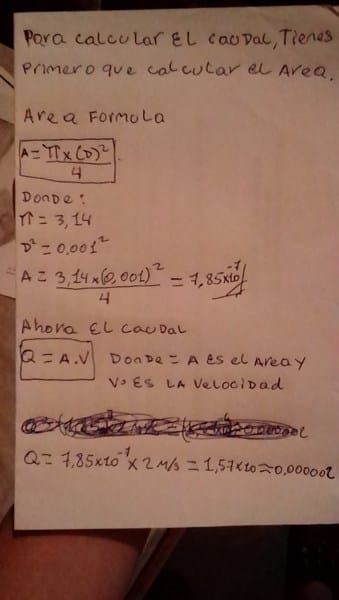 Para calcular El caudal, Tienes
Primero que calcular el Area.
Area Formula
A = π x (D)²/4
Donde:
π = 3,14
D² = 0,001²
A = 3,14 x (0,001)²/4 = 7,85x10⁻⁷
Ahora El caudal
Q = A.V Donde = A Es el Area y
V. Es LA Velocidad
Q = 7,85x10⁻⁷ x 2 M/s = 1,57x10 ≈ 0,000002